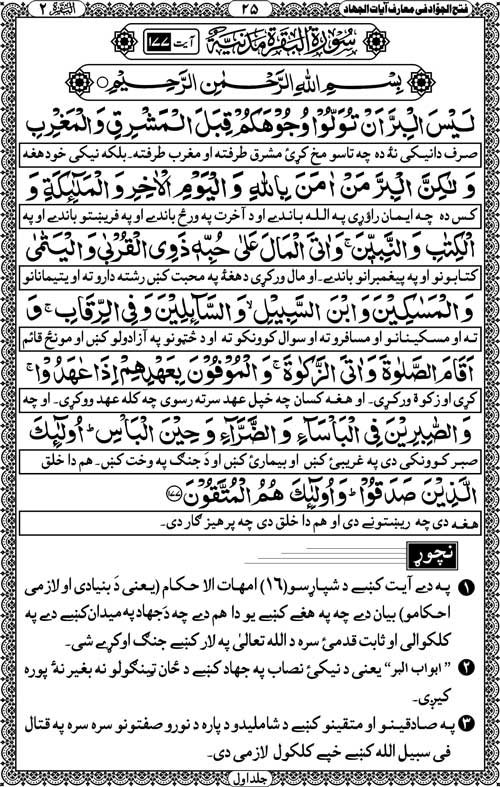 البقرة ٢
٢٥
فتح الجوّاد فی معارف آیات الجهاد
سُوْرَةُ الْبَقَرَةِ مَدَنِیَّةٌ آیت ١٧٧
بِسْمِ اللهِ الرَّحْمٰنِ الرَّحِیْمِ
لَیْسَ الْبِرَّ اَنْ تُوَلُّوْا وُجُوْهَكُمْ قِبَلَ الْمَشْرِقِ وَالْمَغْرِبِ
صرف دا نیکي نۀ ده چه تاسو مخ کړئ مشرق طرفته او مغرب طرفته۔ بلکه نیکي خو دهغه
وَلٰكِنَّ الْبِرَّ مَنْ اٰمَنَ بِاللهِ وَالْیَوْمِ الْاٰخِرِ وَالْمَلٰٓئِكَةِ وَ
کس ده چه ایمان راوړي په الله باندے او د آخرت په ورځ باندے او په فریښتو باندے او په
الْكِتٰبِ وَالنَّبِیّٖنَ ۚ وَاٰتَی الْمَالَ عَلٰی حُبِّهٖ ذَوِی الْقُرْبٰی وَالْیَتٰمٰی
کتابونو او په پیغمبرانو باندے۔ او مال ورکړي دهغۀ په محبت کښ رشته دارو ته او یتیمانانو
وَالْمَسٰكِیْنَ وَابْنَ السَّبِیْلِ ۙ وَالسَّآئِلِیْنَ وَفِی الرِّقَابِ ۚ وَ
ته او مسکینانو او مسافرو ته او سوال کوونکو ته او د څټونو په آزادولو کښ او مونځ قائم
اَقَامَ الصَّلٰوةَ وَاٰتَی الزَّكٰوةَ ۚ وَالْمُوْفُوْنَ بِعَهْدِهِمْ اِذَا عٰهَدُوْا ۚ
کړي او زکوة ورکړي۔ او هغه کسان چه خپل عهد سرته رسوي چه کله عهد ووکړي۔ او چه
وَالصّٰبِرِیْنَ فِی الْبَاْسَآءِ وَالضَّرَّآءِ وَحِیْنَ الْبَاْسِ ؕ اُولٰٓئِكَ
صبر کوونکي دي په غریبئ کښ او بیمارئ کښ او دَ جنګ په وخت کښ۔ هم دا خلق
الَّذِیْنَ صَدَقُوْا ؕ وَاُولٰٓئِكَ هُمُ الْمُتَّقُوْنَ ﴿١٧٧﴾
هغه دي چه ریښتوني دي او هم دا خلق دي چه پرهیز ګار دي۔
نچوړ
١ په دے آیت کښے د شپاړسو (١٦) امهات الاحکام (یعني دَ بنیادي او لازمي
احکامو) بیان دے چه په هغے کښے یو دا هم دے چه دَ جهاد په میدان کښے دے په
کلکوالي او ثابت قدمئ سره د الله تعالیٰ په لار کښے جنګ اوکړے شي۔
٢ "ابواب البر" یعني د نیکئ نصاب په جهاد کښے د ځان ټینګولو نه بغیر نۀ پوره
کیږي۔
٣ په صادقینو او متقینو کښے د شاملیدو د پاره د نورو صفتونو سره سره په قتال
في سبیل الله کښے خپے کلکول لازمي دي۔
جلد اول